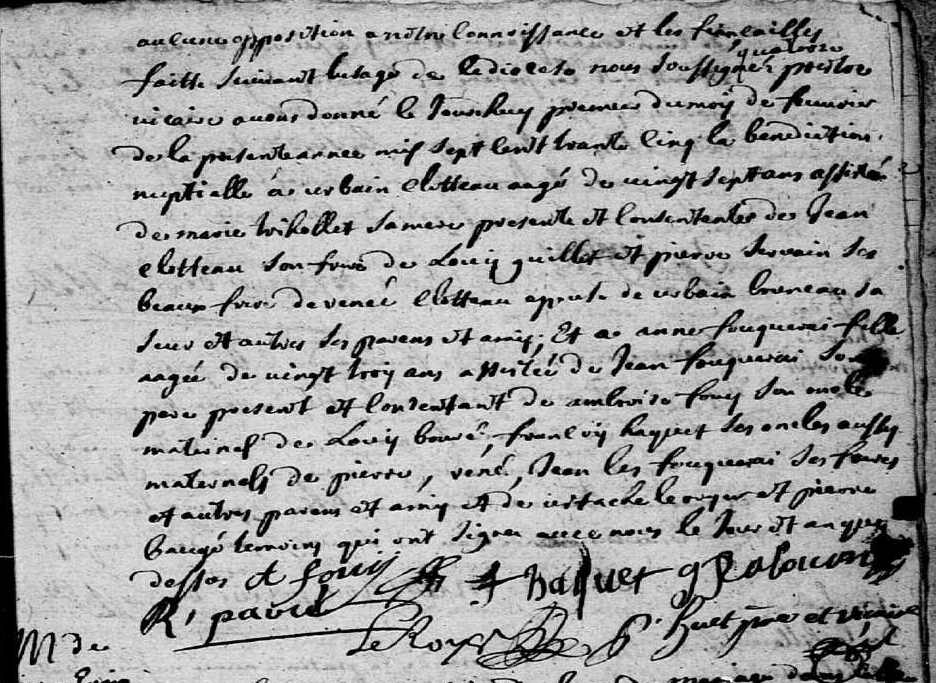 aucune opposition a notre connoissance et les fiancailles
faitte suivant lusage de ce diocese nous soussigné prestre
vicaire avons donné le Jourdhuy premier du moy de feuvrier
de la presente annee mil sept cent trante cinq la benediction
nuptialle a urbain clotteau aagé de vingt sept ans assisté
de marie trihollet sa mere presente et consentente de Jean
clotteau son frere de Louis guillet et pierre servain ses
beaux frere de renée clotteau epouse de urbain bruneau sa
seur et autres ses parens et amis; Et a anne fouquerai fille
aagée de vingt troy ans assistée de Jean fouquerai son
pere present et consentant de ambroise fouy son oncle
maternel de Louis boué, francois haquet ses oncles aussy
maternels de pierre, rené, Jean les fouquerai ses freres
et autres parens et amis et de eustache le royer et pierre
baugé temoins qui ont signé avec nous le Jour et an que
dessus fouy haquet
R. pavie
le Royer p. huet ptre et vicaire
M de
mariage dans